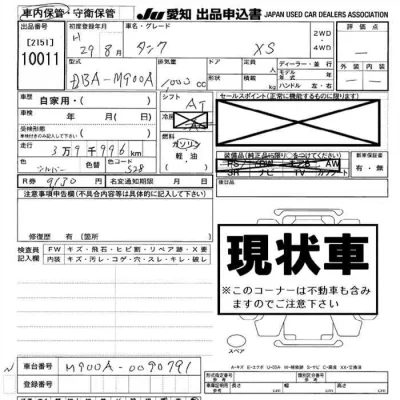 車内保管・守衛保管
JU 愛知 出品申込書 JAPAN USED CAR DEALERS ASSOCIATION
出品番号 初度登録年月 車名・グレード 2WD 4WD 評価点
[2151] H 29年8月 タンク XS
10011
型式 排気量 ドア 定員 ディーラー・並行
DBA-M900A 1000 CC 人 モデル年式 年 外装 内装
車歴 自家用・( ) シフト AT
セールスポイント(正常に機能するものに限ります)
車検 年 月(日) 冷房
受検形態 燃料 ガソリン
軽油
走行 3万9千996km
装備品(純正品に限り○をつけてください) 新車保証書
SR ナビ TV カワシート AW 有・無
色 シルバー 色替 色コード S28
R券 9130円 名変通知期限 月 日 後日品
注意事項申告欄(不具合内容等は具体的に記入して下さい)
修復歴 有( )箇所
検査員記入欄 FW キズ・飛石・ヒビ割・リペア跡・X要
内装 キズ・汚レ・コゲ・穴・スレ・キレ・破レ
現状車
※このコーナーは不動車も含みますのでご注意下さい
スペア
車台番号 M900A-0090791
登録番号